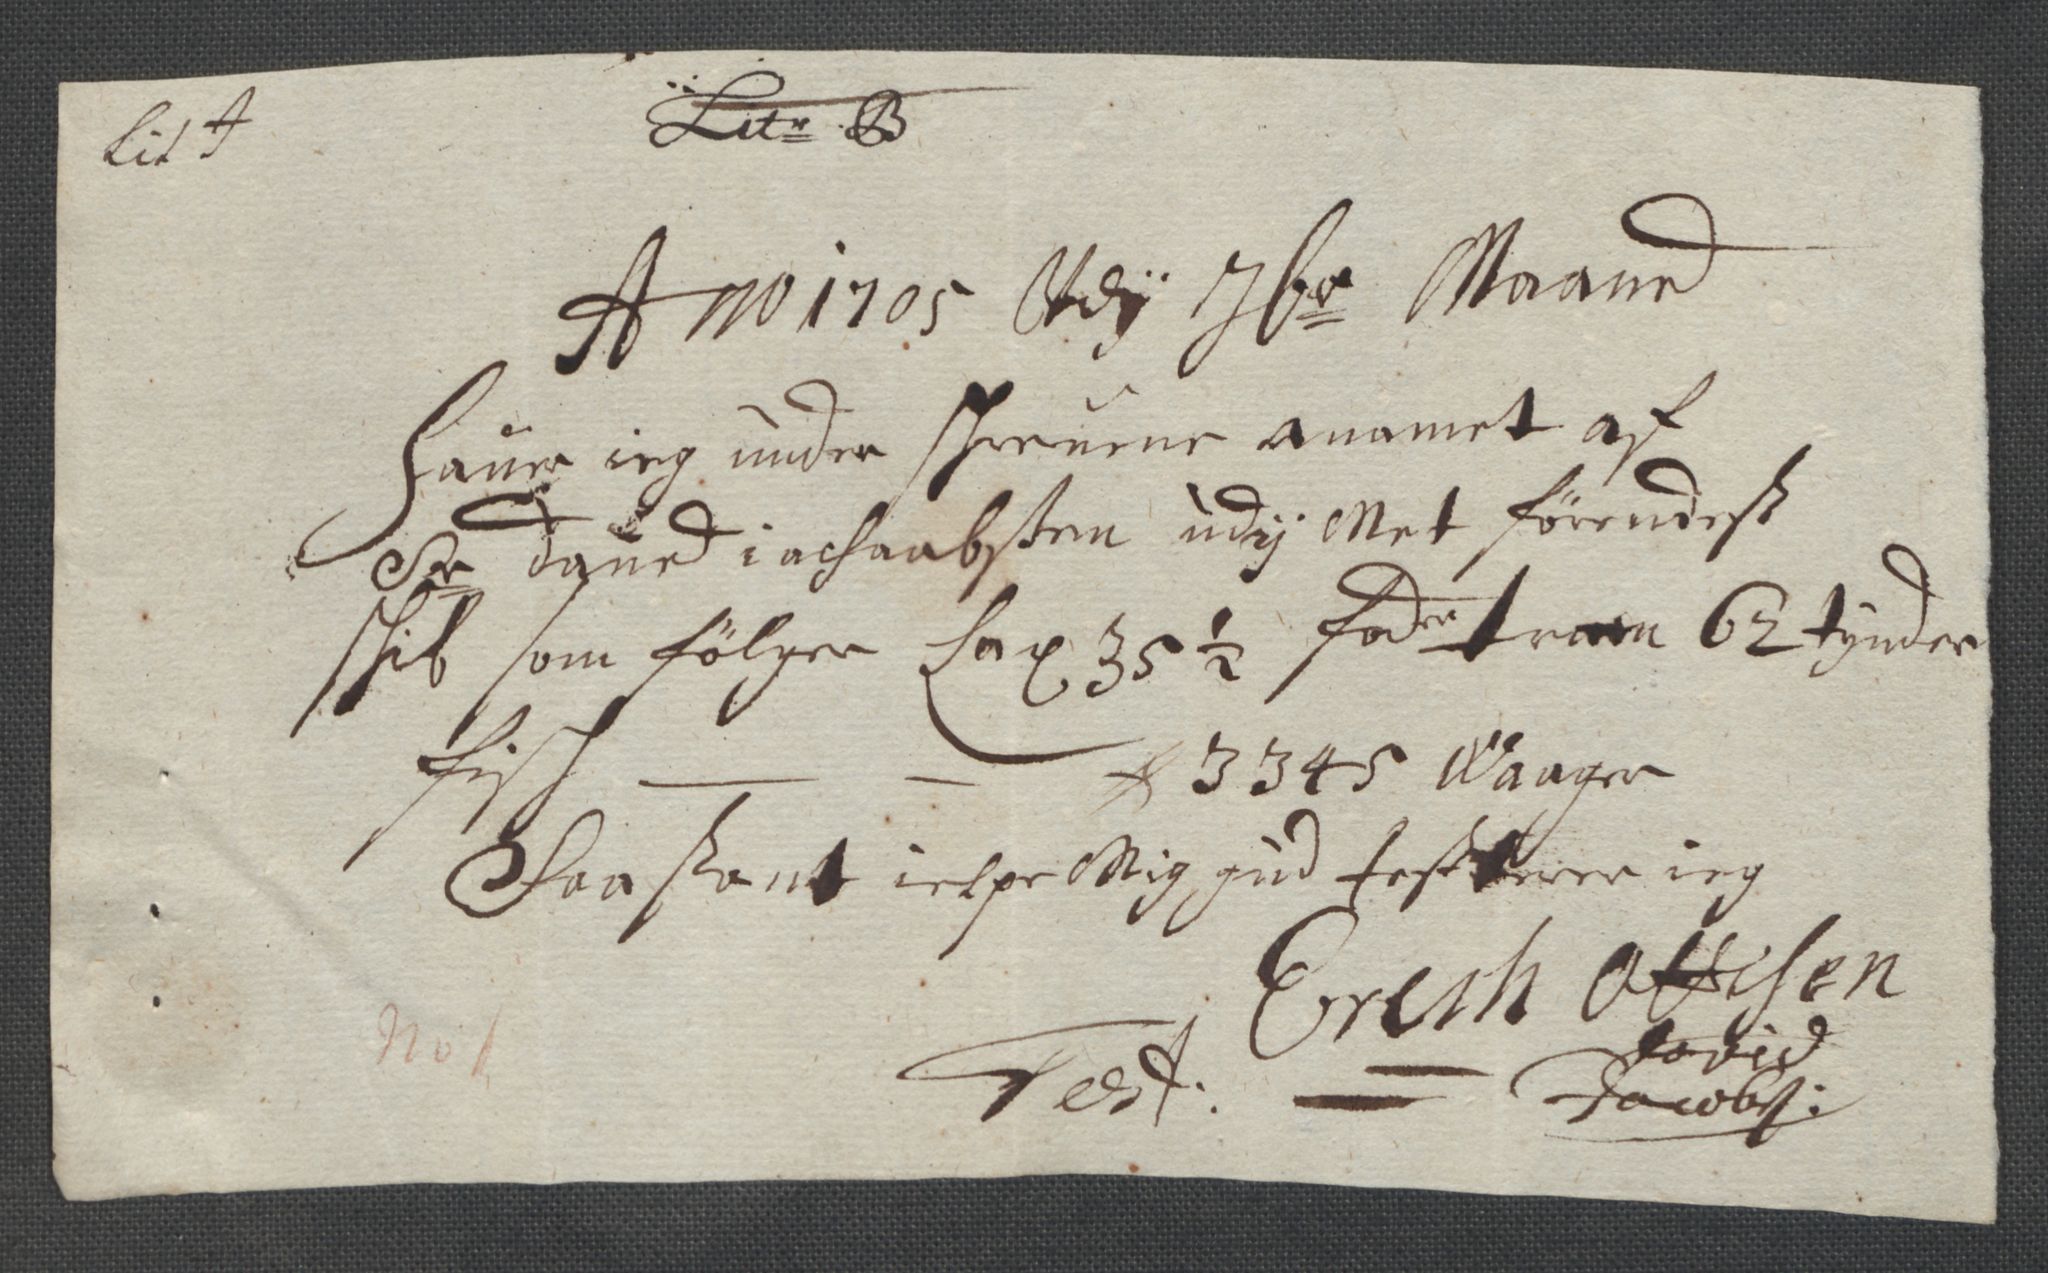 Lit A
Litr B
Ano 1705 Udÿ 7br Maaned
Hauer ieg under schreuene anamet af
Sr daued iachaabsten udÿ Met förendest
schib som fölger Lax 35 1/2 foder tran 62 tÿnder
fisch — — 3345 Waager
Saa sant ielpe Mig gud testerer ieg
Erech Ottesen
Test.
david
Jacobst:
No 1